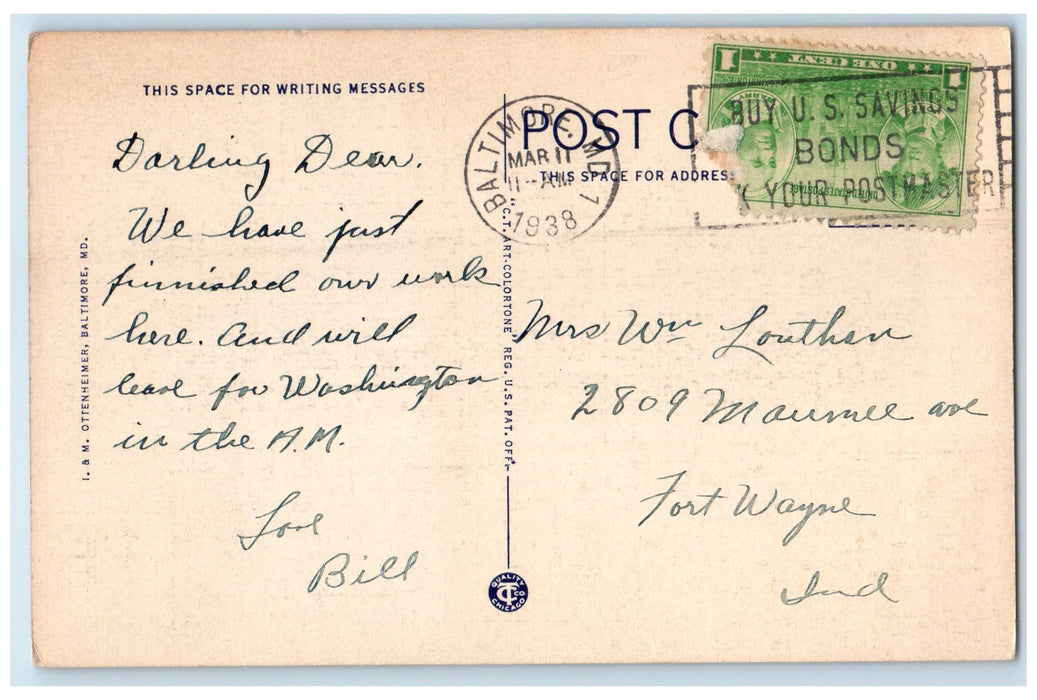 THIS SPACE FOR WRITING MESSAGES
Darling Dear.
We have just
finnished our work
here. And will
leave for Washington
in the A.M.
Love
Bill
I. & M. OTTENHEIMER, BALTIMORE, MD.
"C.T. ART-COLORTONE" REG. U.S. PAT. OFF.
QUALITY
CT CO
CHICAGO
POST C
THIS SPACE FOR ADDRESS
BALTIMORE, MD. 1
MAR 11
11-AM
1938
1 ONE CENT 1
UNITED STATES POSTAGE
BUY U.S. SAVINGS
BONDS
K YOUR POSTMASTER
Mrs Wm Louthan
2809 Maumee ave
Fort Wayne
Ind